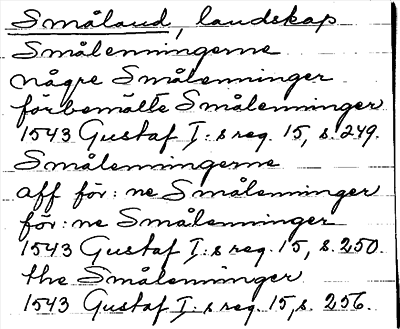 Småland, landskap
Smålenningerne
någre Smålenninger
förbemälte Smålenninger
1543 Gustaf I:s reg. 15, s. 249.
Smålenningerne
aff för: ne Smålenninger
för: ne Smålenninger
1543 Gustaf I: s reg. 15, s. 250.
the Smålenninger
1543 Gustaf I: s reg. 15, s. 256.